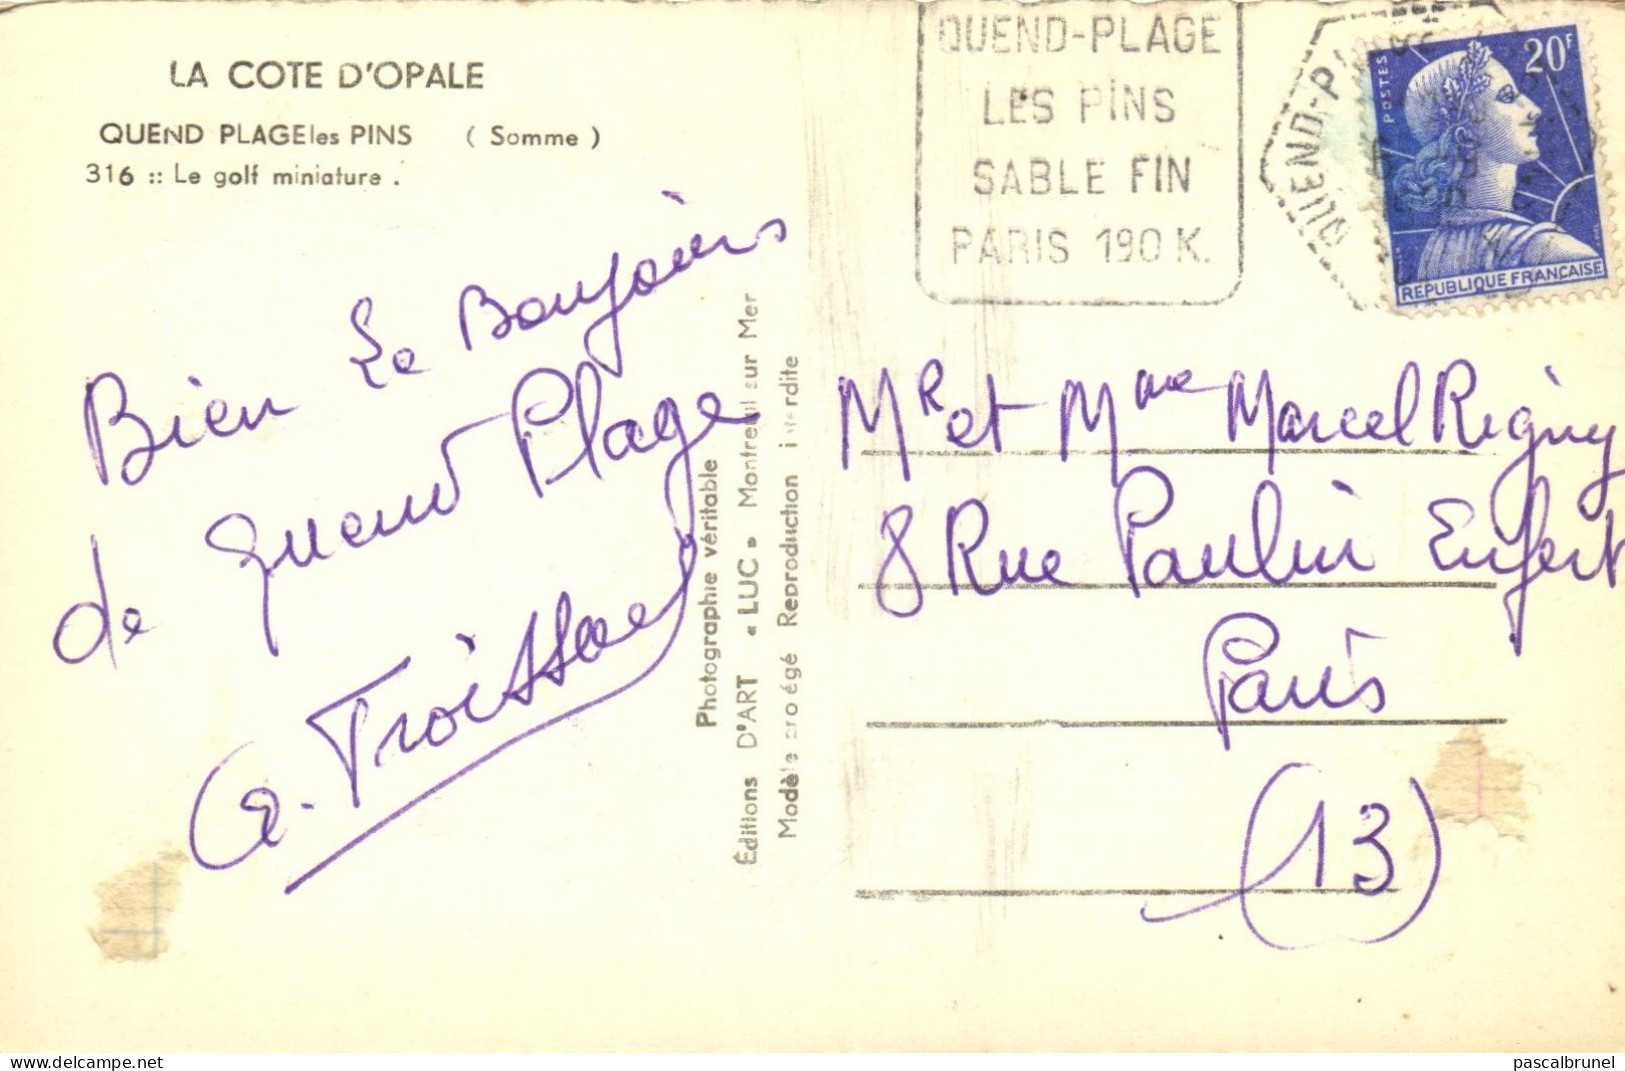 LA COTE D'OPALE
QUEND PLAGE les PINS ( Somme )
316 :: Le golf miniature .
Bien Le Bonjours
de Quend Plage
G. Froissard
Photographie véritable
Éditions D'ART « LUC » Montreuil sur Mer
Modèle protégé Reproduction interdite
QUEND-PLAGE
LES PINS
SABLE FIN
PARIS 190 K.
QUEND-PLAGE
POSTES
20F
REPUBLIQUE FRANÇAISE
Mr et Mme Marcel Reginy
8 Rue Paulin Enfert
Paris
(13)
delcampe.net
pascalbrunel